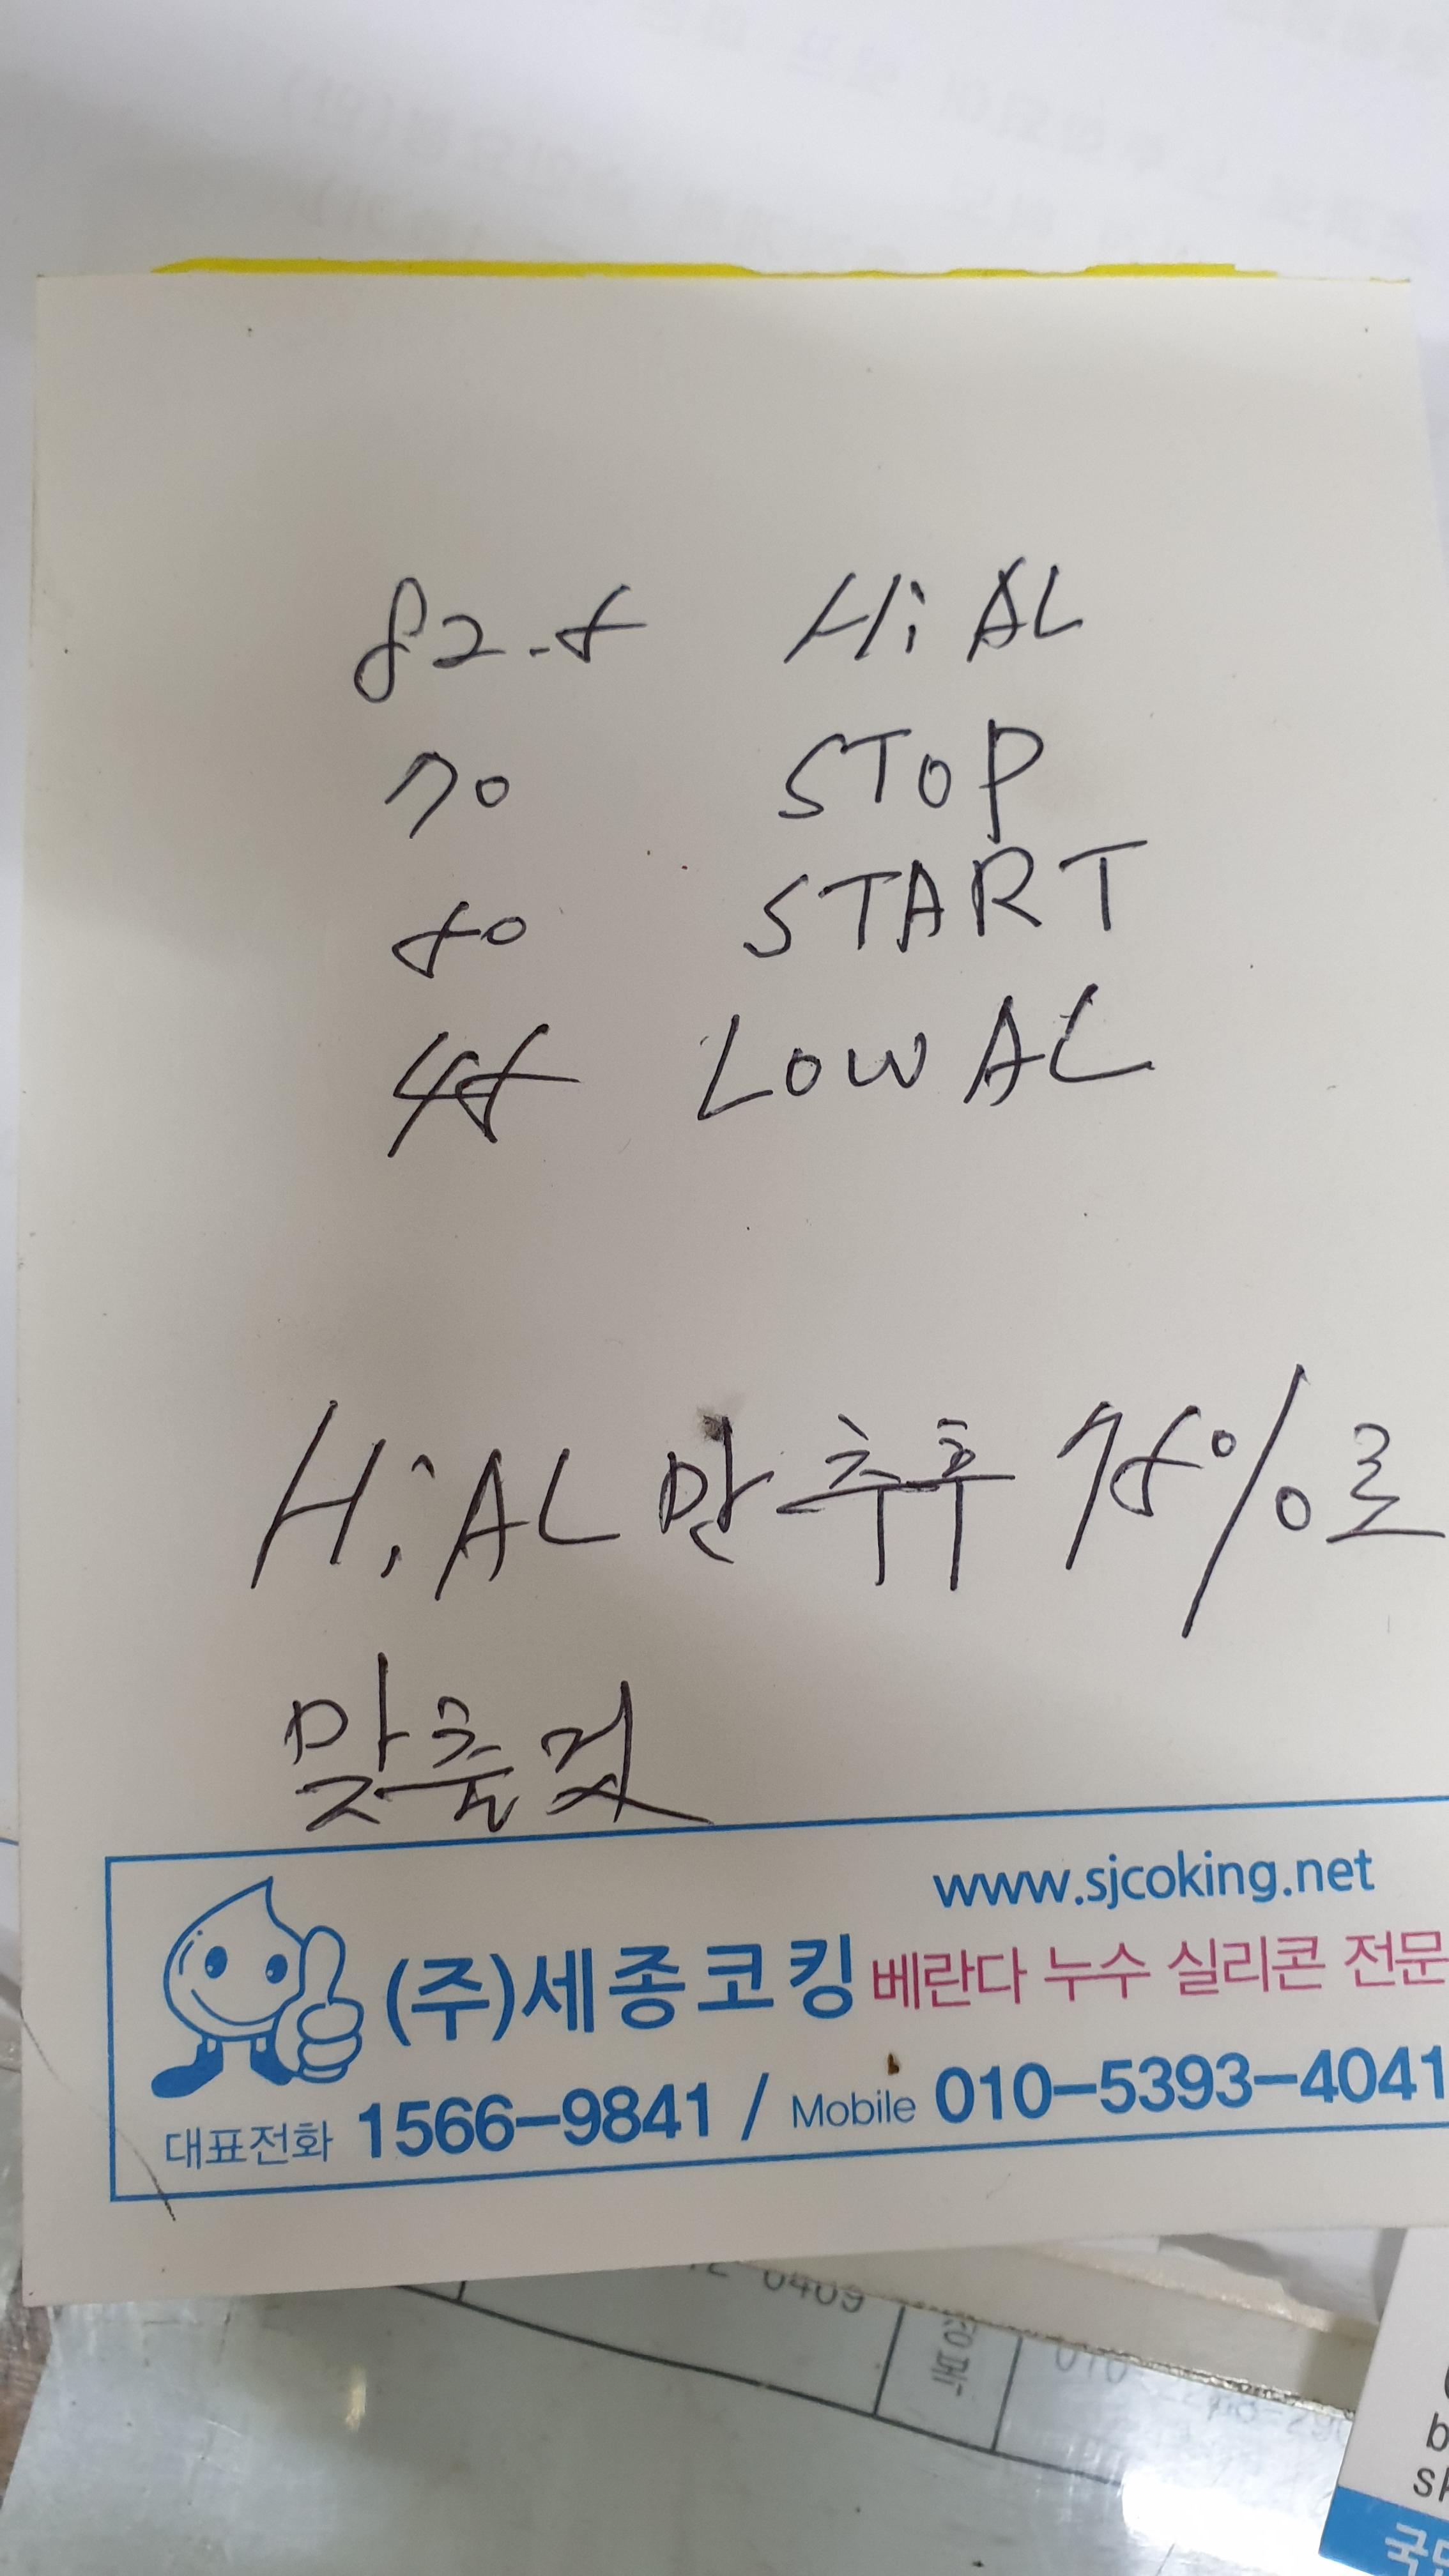 82.5 Hi AL
70 STOP
50 START
45 LOW AL
Hi AL 만 추후 75%로
맞출것
www.sjcoking.net
(주)세종코킹 베란다 누수 실리콘 전문
대표전화 1566-9841 / Mobile 010-5393-4041
0409